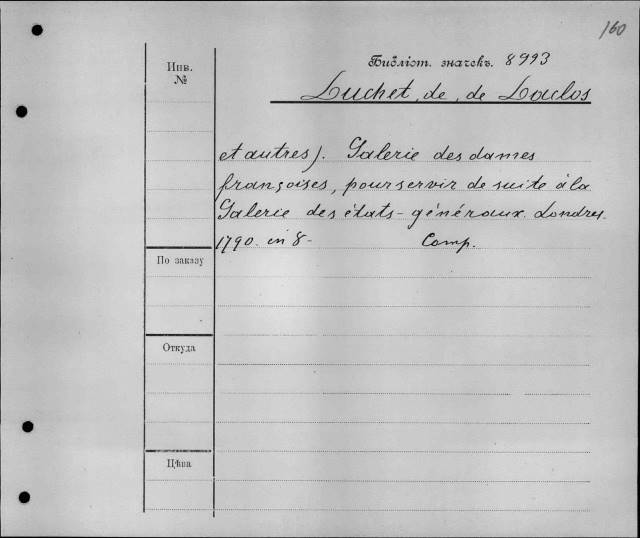 160
Библіот. значекъ. 8993
Инв.
№
Luchet, de, de Laclos
et autres). Galerie des dames
françoises, pour servir de suite à la
Galerie des états-généraux. Londres.
1790. in 8-
Comp.
По заказу
Откуда
Цѣна